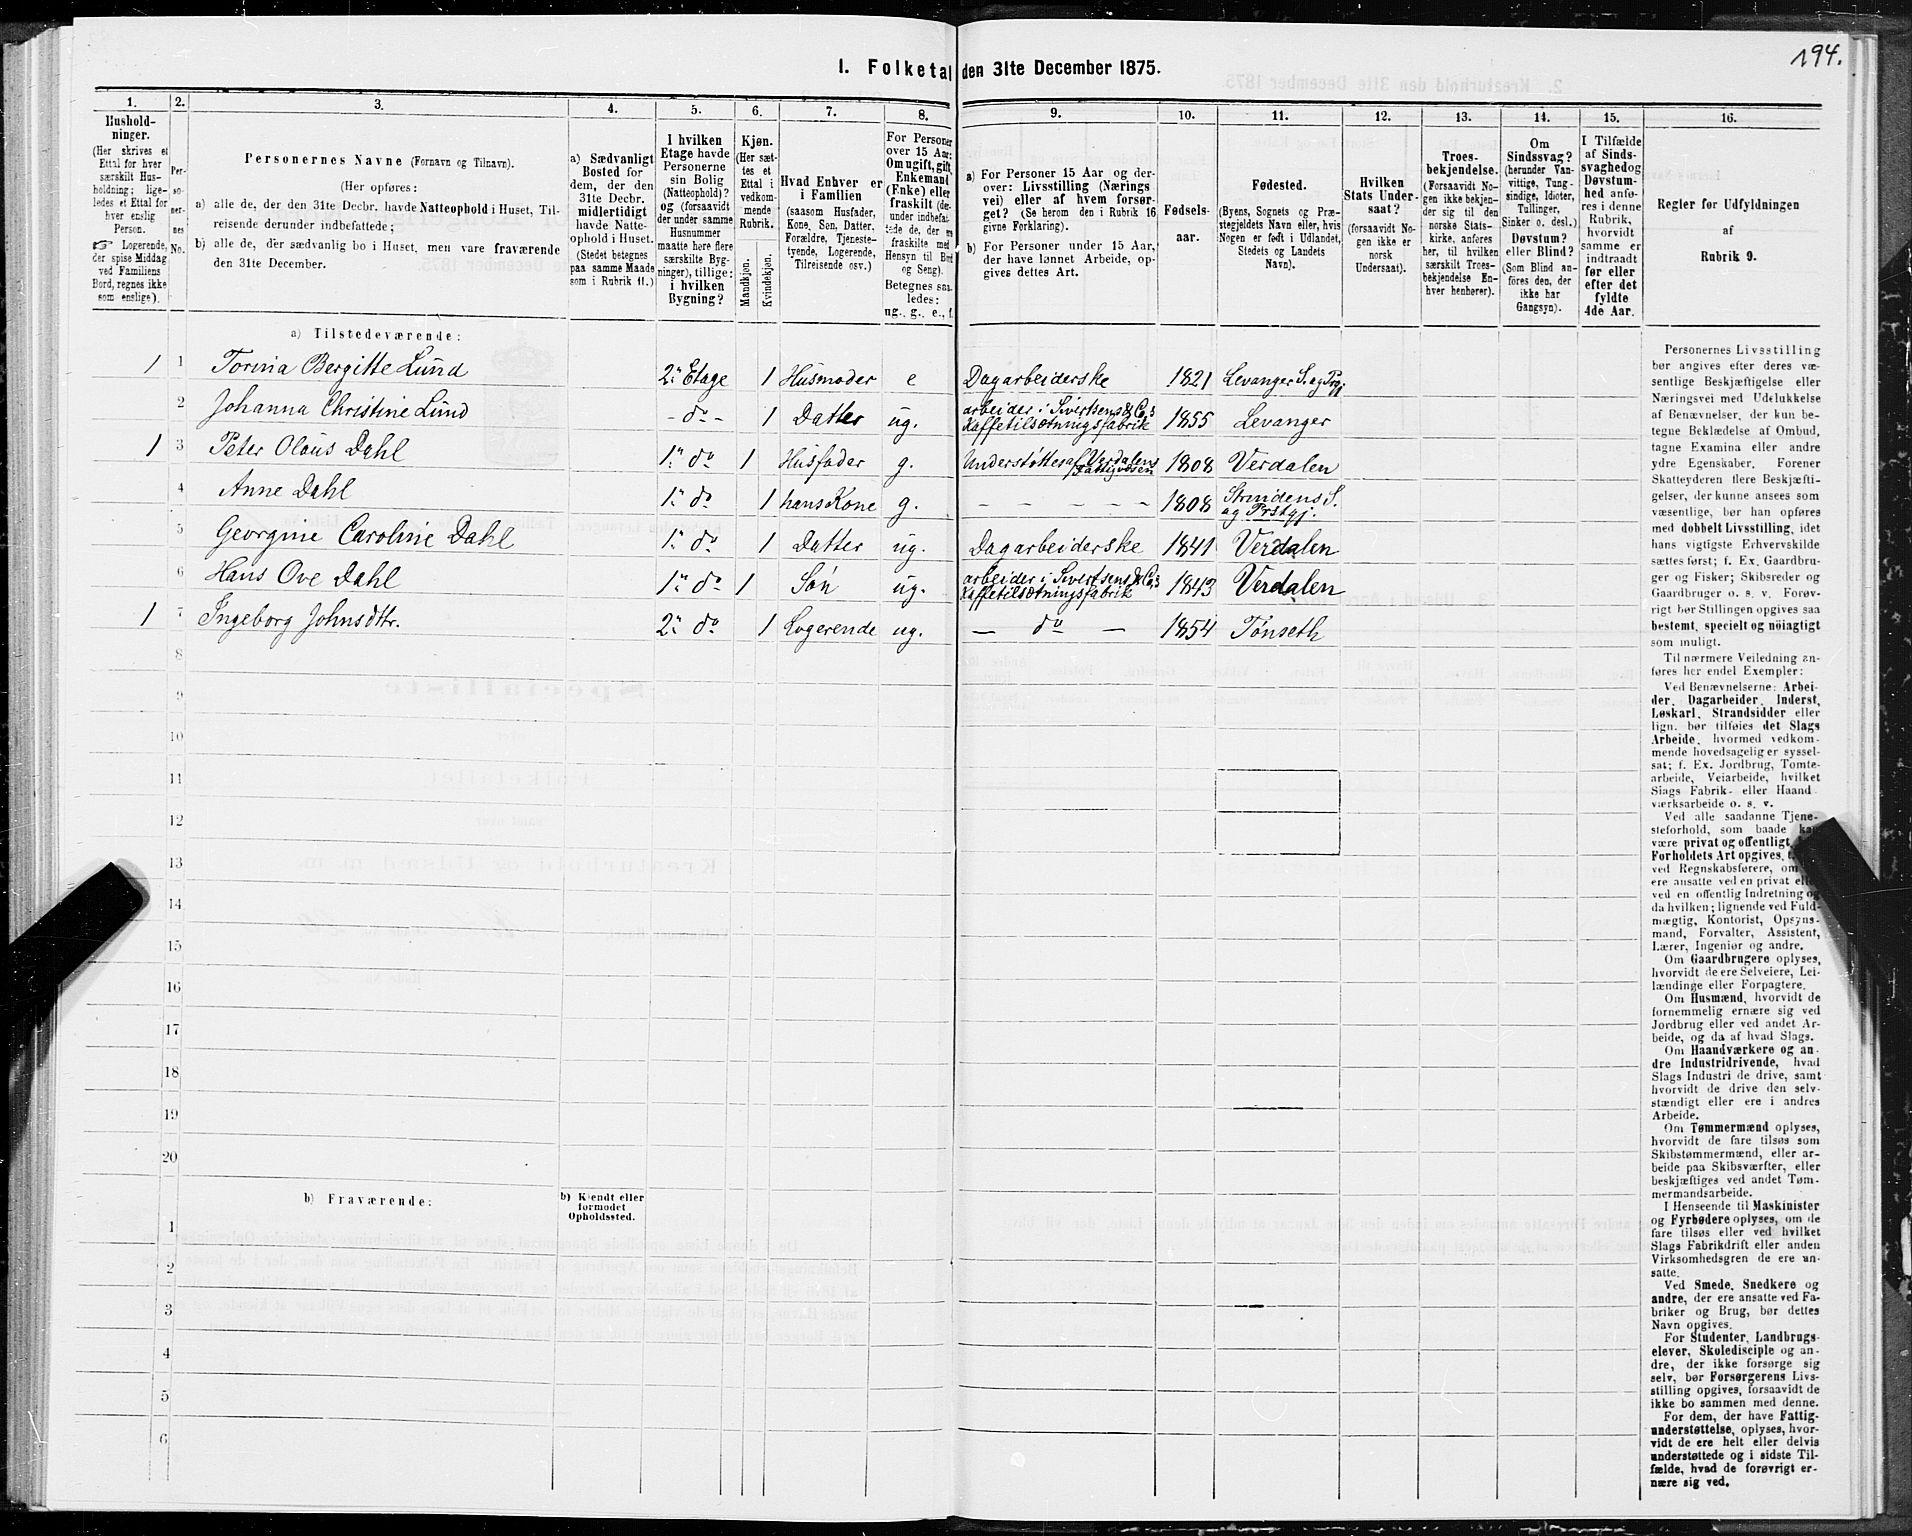 194.
I. Folketal den 31te December 1875.
1. 2. 3. 4. 5. 6. 7. 8. 9. 10. 11. 12. 13. 14. 15. 16.
Hushold-
ninger.
(Her skrives et
Ettal for hver
særskilt Hus-
holdning; lige-
ledes et Ettal for
hver enslig
Person.
☞ Logerende,
der spise Middag
ved Familiens
Bord, regnes ikke
som enslige).
Per-
so-
ner-
nes
No.
Personernes Navne (Fornavn og Tilnavn).
(Her opføres:
a) alle de, der den 31te Decbr. havde Natteophold i Huset, Til-
reisende derunder indbefattede;
b) alle de, der sædvanlig bo i Huset, men vare fraværende
den 31te December.
a) Sædvanligt
Bosted for
dem, der den
31te Decbr.
midlertidigt
havde Natte-
ophold i Huset.
(Stedet betegnes
paa samme Maade
som i Rubrik 11.)
I hvilken
Etage havde
Personerne
sin Bolig
(Natteophold)?
og (forsaavidt
der under samme
Husnummer
maatte høre flere
særskilte Byg-
ninger), tillige:
i hvilken
Bygning?
Kjøn.
(Her sæt-
tes et
Ettal i
vedkom-
mende
Rubrik.)
Mandkjøn.
Kvindekjøn.
Hvad Enhver er
i Familien
(saasom Husfader,
Kone, Søn, Datter,
Forældre, Tjeneste-
tyende, Logerende,
Tilreisende osv.)
For Personer
over 15 Aar:
Om ugift, gift,
Enkemand
(Enke) eller
fraskilt (de-
runder indbefat-
tede de, der ere
fraskilte med
Hensyn til Bord
og Seng).
Betegnes saa-
ledes:
ug., g., e., f.
a) For Personer 15 Aar og der-
over: Livsstilling (Nærings-
vei) eller af hvem forsør-
get? (Se herom den i Rubrik 16
givne Forklaring).
b) For Personer under 15 Aar,
der have lønnet Arbeide, op-
gives dettes Art.
Fødsels-
aar.
Fødested.
(Byens, Sognets og Præ-
stegjeldets Navn eller, hvis
Nogen er født i Udlandet,
Stedets og Landets
Navn).
Hvilken
Stats Under-
saat?
(forsaavidt No-
gen ikke er
norsk
Undersaat).
Troes-
bekjendelse.
(Forsaavidt No-
gen ikke bekjen-
der sig til den
norske Stats-
kirke, anføres
her, til hvilken
særskilt Troes-
bekjendelse En-
hver henhører).
Om
Sindssvag?
(herunder Van-
vittige, Tung-
sindige, Idioter,
Tullinger,
Sinker o. desl.)
Døvstum?
eller Blind?
(Som Blind an-
føres den, der
ikke har
Gangsyn).
I Tilfælde
af Sinds-
svaghed og
Døvstum-
hed anfø-
res i denne
Rubrik,
hvorvidt
samme er
indtraadt
før eller
efter det
fyldte
4de Aar.
Regler for Udfyldningen
af
Rubrik 9.
a) Tilstedeværende:
1 1 Torina Bergitte Lund 2n Etage 1 Husmoder e Dagarbeiderske 1821 Levanger S. og Prgj
2 Johanna Christine Lund - do - 1 Datter ug. arbeider i Sivertsens & Co,s Kaffetilsætningsfabrik 1855 Levanger
1 3 Peter Olaus Dahl 1n do 1 Husfader g. Understøttes af Verdalens Fattigvæsen 1808 Verdalen
4 Anne Dahl 1n do 1 hans Kone g. - - - - - 1808 Strindens S. og Prstgj.
5 Georgine Caroline Dahl 1n do 1 Datter ug. Dagarbeiderske 1841 Verdalen
6 Hans Ove Dahl 1n do 1 Søn ug. arbeider i Sivertsens & Co,s Kaffetilsætningsfabrik 1843 Verdalen
1 7 Ingeborg Johnsdttr. 2n do 1 Logerende ug. - do - 1854 Tønseth
8
9
10
11
12
13
14
15
16
17
18
19
20
b) Fraværende:
b) Kjendt eller
formodet
Opholdssted.
1
2
3
4
5
6
Personernes Livsstilling
bør angives efter deres væ-
sentlige Beskjæftigelse eller
Næringsvei med Udelukkelse
af Benævnelser, der kun be-
tegne Beklædelse af Ombud,
tagne Examina eller andre
ydre Egenskaber. Forener
Skatteyderen flere Beskjæfti-
gelser, der kunne ansees som
væsentlige, bør han opføres
med dobbelt Livsstilling, idet
hans vigtigste Erhvervskilde
sættes først; f. Ex. Gaardbru-
ger og Fisker; Skibsreder og
Gaardbruger o. s. v. Forøv-
rigt bør Stillingen opgives saa
bestemt, specielt og nøiagtigt
som muligt.
Til nærmere Veiledning an-
føres her endel Exempler:
Ved Benævnelserne: Arbei-
der, Dagarbeider, Inderst,
Løskarl, Strandsidder eller
lign. bør tilføies det Slags
Arbeide, hvormed vedkom-
mende hovedsagelig er syssel-
sat; f. Ex. Jordbrug, Tomte-
arbeide, Veiarbeide, hvilket
Slags Fabrik- eller Haand-
værksarbeide o. s. v.
Ved alle saadanne Tjene-
steforhold, som baade kan
være privat og offentligt,
Forholdets Art opgives,
ved Regnskabsførere, om
ere ansatte ved en privat eller
ved en offentlig Indretning og
da hvilken; lignende ved Fuld-
mægtig, Kontorist, Opsyns-
mand, Forvalter, Assistent,
Lærer, Ingeniør og andre.
Om Gaardbrugere oplyses,
hvorvidt de ere Selveiere, Lei-
lændinge eller Forpagtere.
Om Husmænd, hvorvidt de
fornemmelig ernære sig ved
Jordbrug eller ved andet Ar-
beide, og da af hvad Slags.
Om Haandværkere og an-
dre Industridrivende, hvad
Slags Industri de drive, samt
hvorvidt de drive den selv-
stændigt eller ere i andres
Arbeide.
Om Tømmermænd oplyses,
hvorvidt de fare tilsøs som
Skibstømmermænd, eller ar-
beide paa Skibsværfter, eller
beskjæftiges ved andet Tøm-
mermandsarbeide.
I Henseende til Maskinister
og Fyrbødere oplyses, om de
fare tilsøs eller ved hvilket
Slags Fabrikdrift eller anden
Virksomhedsgren de ere an-
satte.
Ved Smede, Snedkere og
andre, der ere ansatte ved Fa-
briker og Brug, bør dettes
Navn opgives.
For Studenter, Landbrugs-
elever, Skoledisciple og an-
dre, der ikke forsørge sig
selv, bør Forsørgerens Livs-
stilling opgives, forsaavidt de
ikke bo sammen med denne.
For dem, der have Fattig-
understøttelse, oplyses, hvor-
vidt de ere helt eller delvis
understøttede og i sidste Til-
fælde, hvad de forøvrigt er-
nære sig ved.